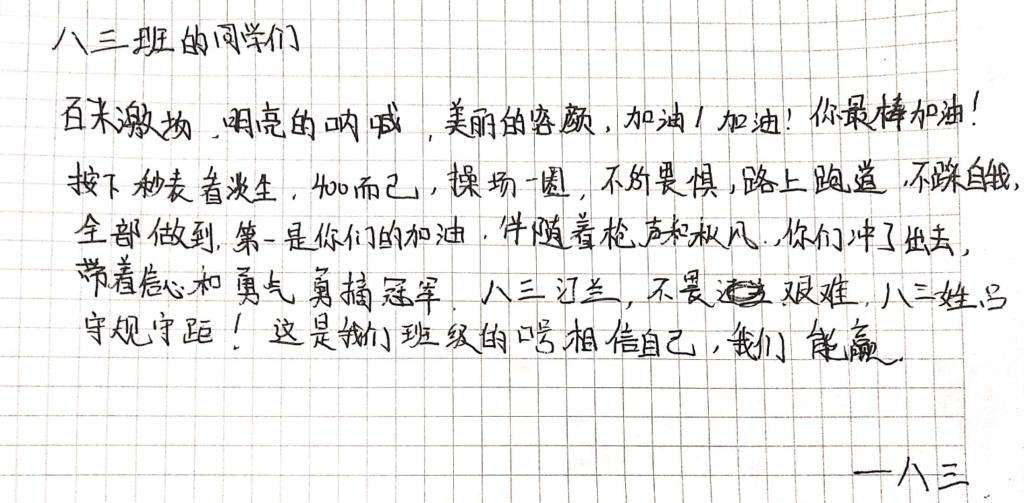 八三班的同学们
百米激扬,明亮的呐喊,美丽的容颜,加油!加油!你最棒加油!
按下秒表看淡生,400而己,操场一圈,不所畏惧,路上跑道,不踩自我,
全部做到,第一是你们的加油.伴随着枪声和秋风,你们冲了出去,
带着信心和勇气勇摘冠军,八三江兰,不畏艰难,八三姓吕
守规守距!这是我们班级的口号,相信自己,我们能赢.
一八三